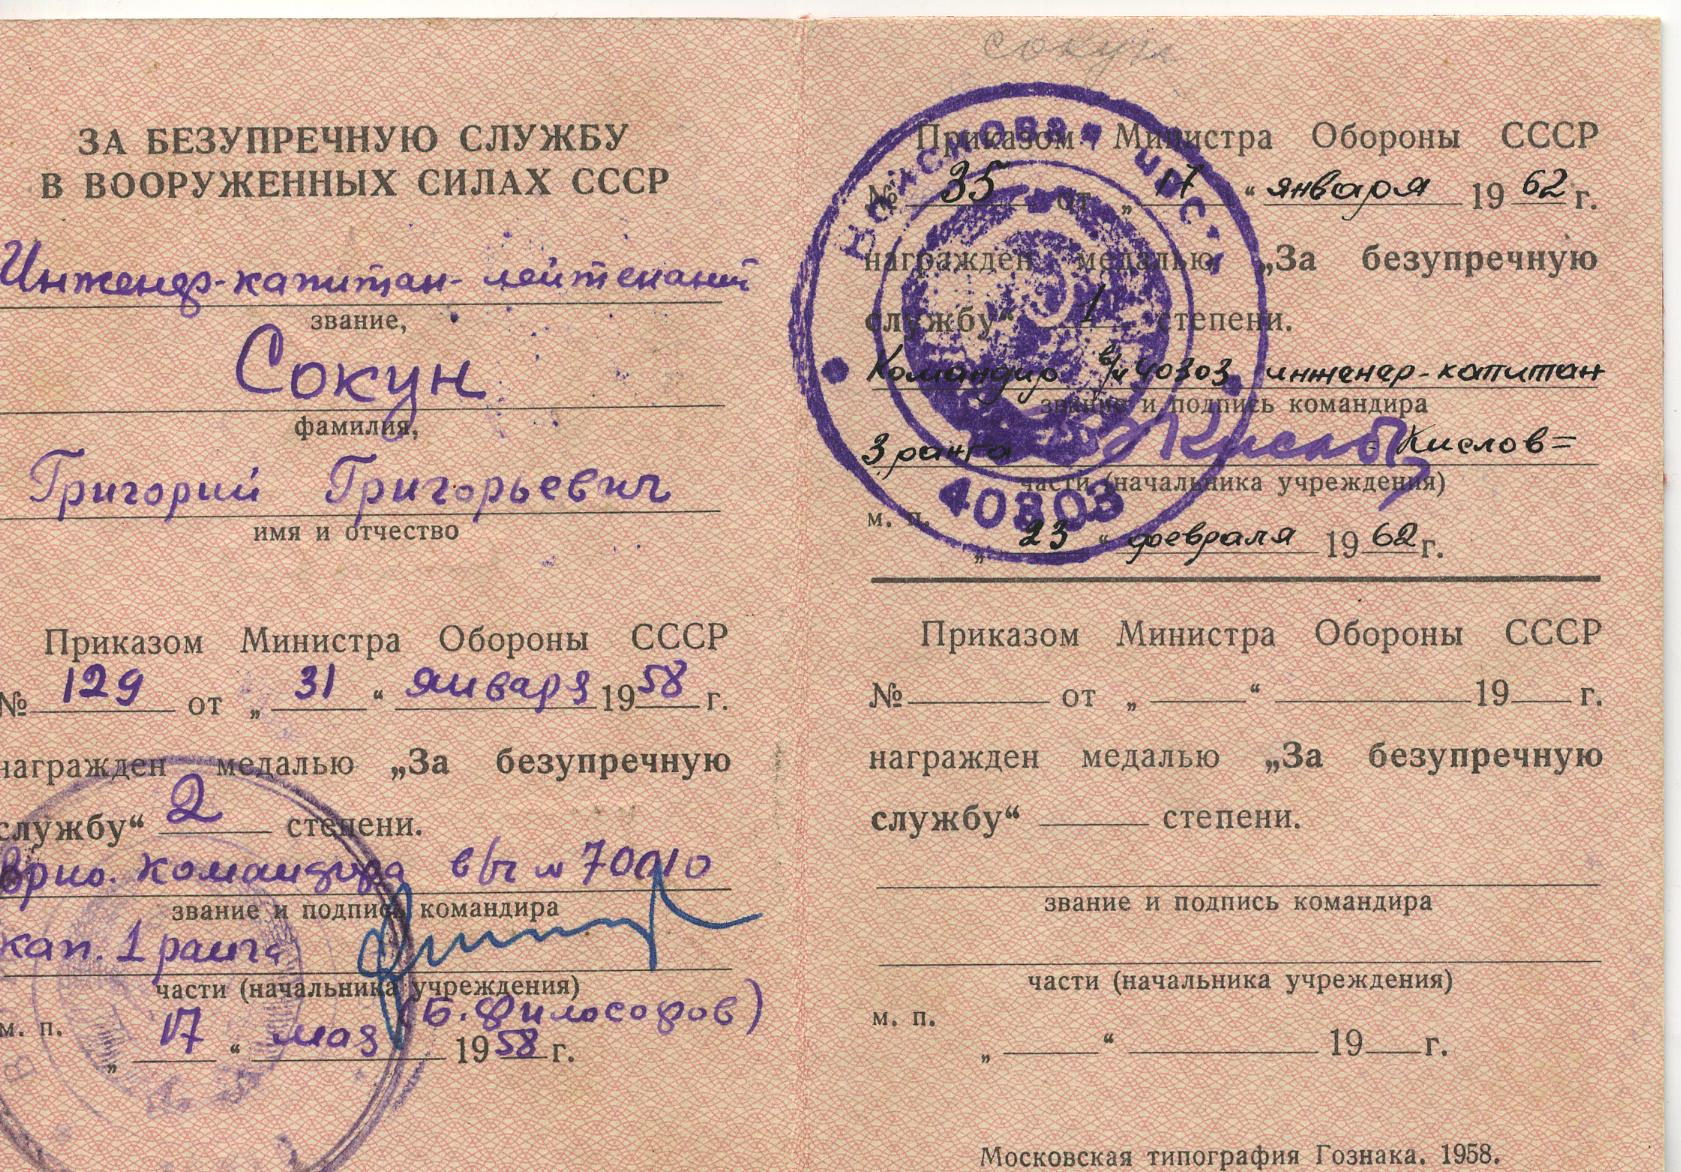 ЗА БЕЗУПРЕЧНУЮ СЛУЖБУ
В ВООРУЖЕННЫХ СИЛАХ СССР
Инженер-капитан-лейтенант
звание,
Сокун
фамилия,
Григорий Григорьевич
имя и отчество
Приказом Министра Обороны СССР
№ 129 от „ 31 “ января 1958 г.
награжден медалью „За безупречную
службу“ 2 степени.
Врио. командира в/ч № 70010
звание и подпись командира
кап. 1 ранга
части (начальника учреждения)
(Б. Философов)
м. п.
„ 17 “ мая 1958 г.
сокун
Приказом Министра Обороны СССР
№ 35 от „ 17 “ января 1962 г.
награжден медалью „За безупречную
службу“ 1 степени.
Командир в/ч 40303 инженер-капитан
звание и подпись командира
3 ранга Кислов Кислов=
части (начальника учреждения)
м. п.
„ 23 “ февраля 1962 г.
Войсковая часть
40303
Приказом Министра Обороны СССР
№ от „ “ 19 г.
награжден медалью „За безупречную
службу“ степени.
звание и подпись командира
части (начальника учреждения)
м. п.
„ “ 19 г.
Московская типография Гознака. 1958.